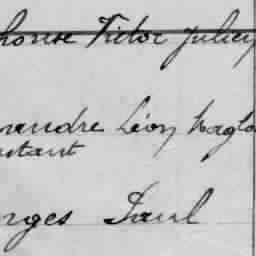 honse Victor Julien
nandre Léon Maglo
nstant
rges Paul